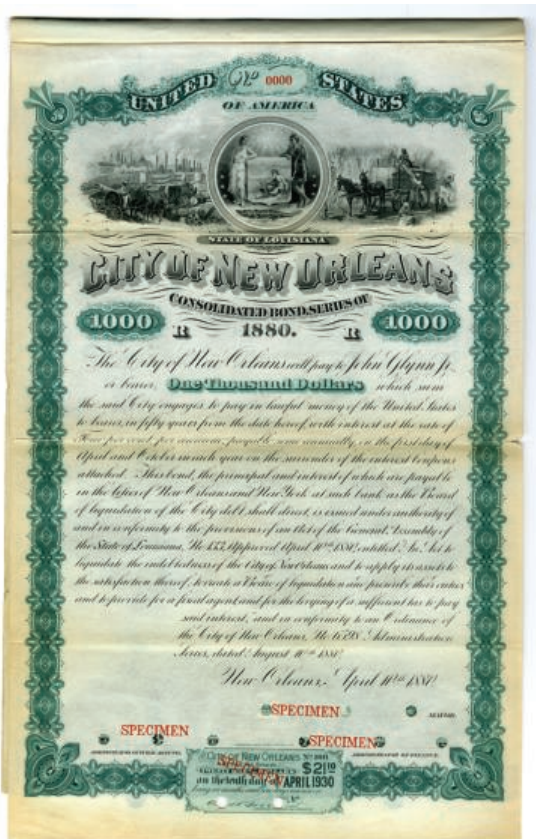 UNITED No 0000 STATES
OF AMERICA
STATE OF LOUISIANA
CITY OF NEW ORLEANS
CONSOLIDATED BOND, SERIES OF
1000 R 1880. R 1000
The City of New Orleans will pay to John Glynn Jr
or bearer, One Thousand Dollars which sum
the said City engages to pay in lawful money of the United States
to bearer, in fifty years from the date hereof, with interest at the rate of
Four per cent per annum, payable semi annually, on the first day of
April and October in each year on the surrender of the interest coupons
attached. This bond, the principal and interest of which are payable
in the Cities of New Orleans and New York at such bank as the Board
of liquidation of the City debt, shall direct, is issued under authority of
and in conformity to the provisions of an Act of the General Assembly of
the State of Louisiana, No 133, Approved April 10th 1880, entitled "An Act to
liquidate the indebtedness of the City of New Orleans and to apply its assets to
the satisfaction thereof, to create a Board of liquidation and prescribe their duties
and to provide for a fiscal agent and for the levying of a sufficient tax to pay
said interest, and in conformity to an Ordinance of
the City of New Orleans, No 6798 Administration
Series, dated August 10th 1880
New Orleans, April 10th 1880
SPECIMEN MAYOR.
SPECIMEN SPECIMEN
ADMINISTRATOR OF FINANCE.
CITY OF NEW ORLEANS
SPECIMEN $21
on the tenth day of APRIL 1930